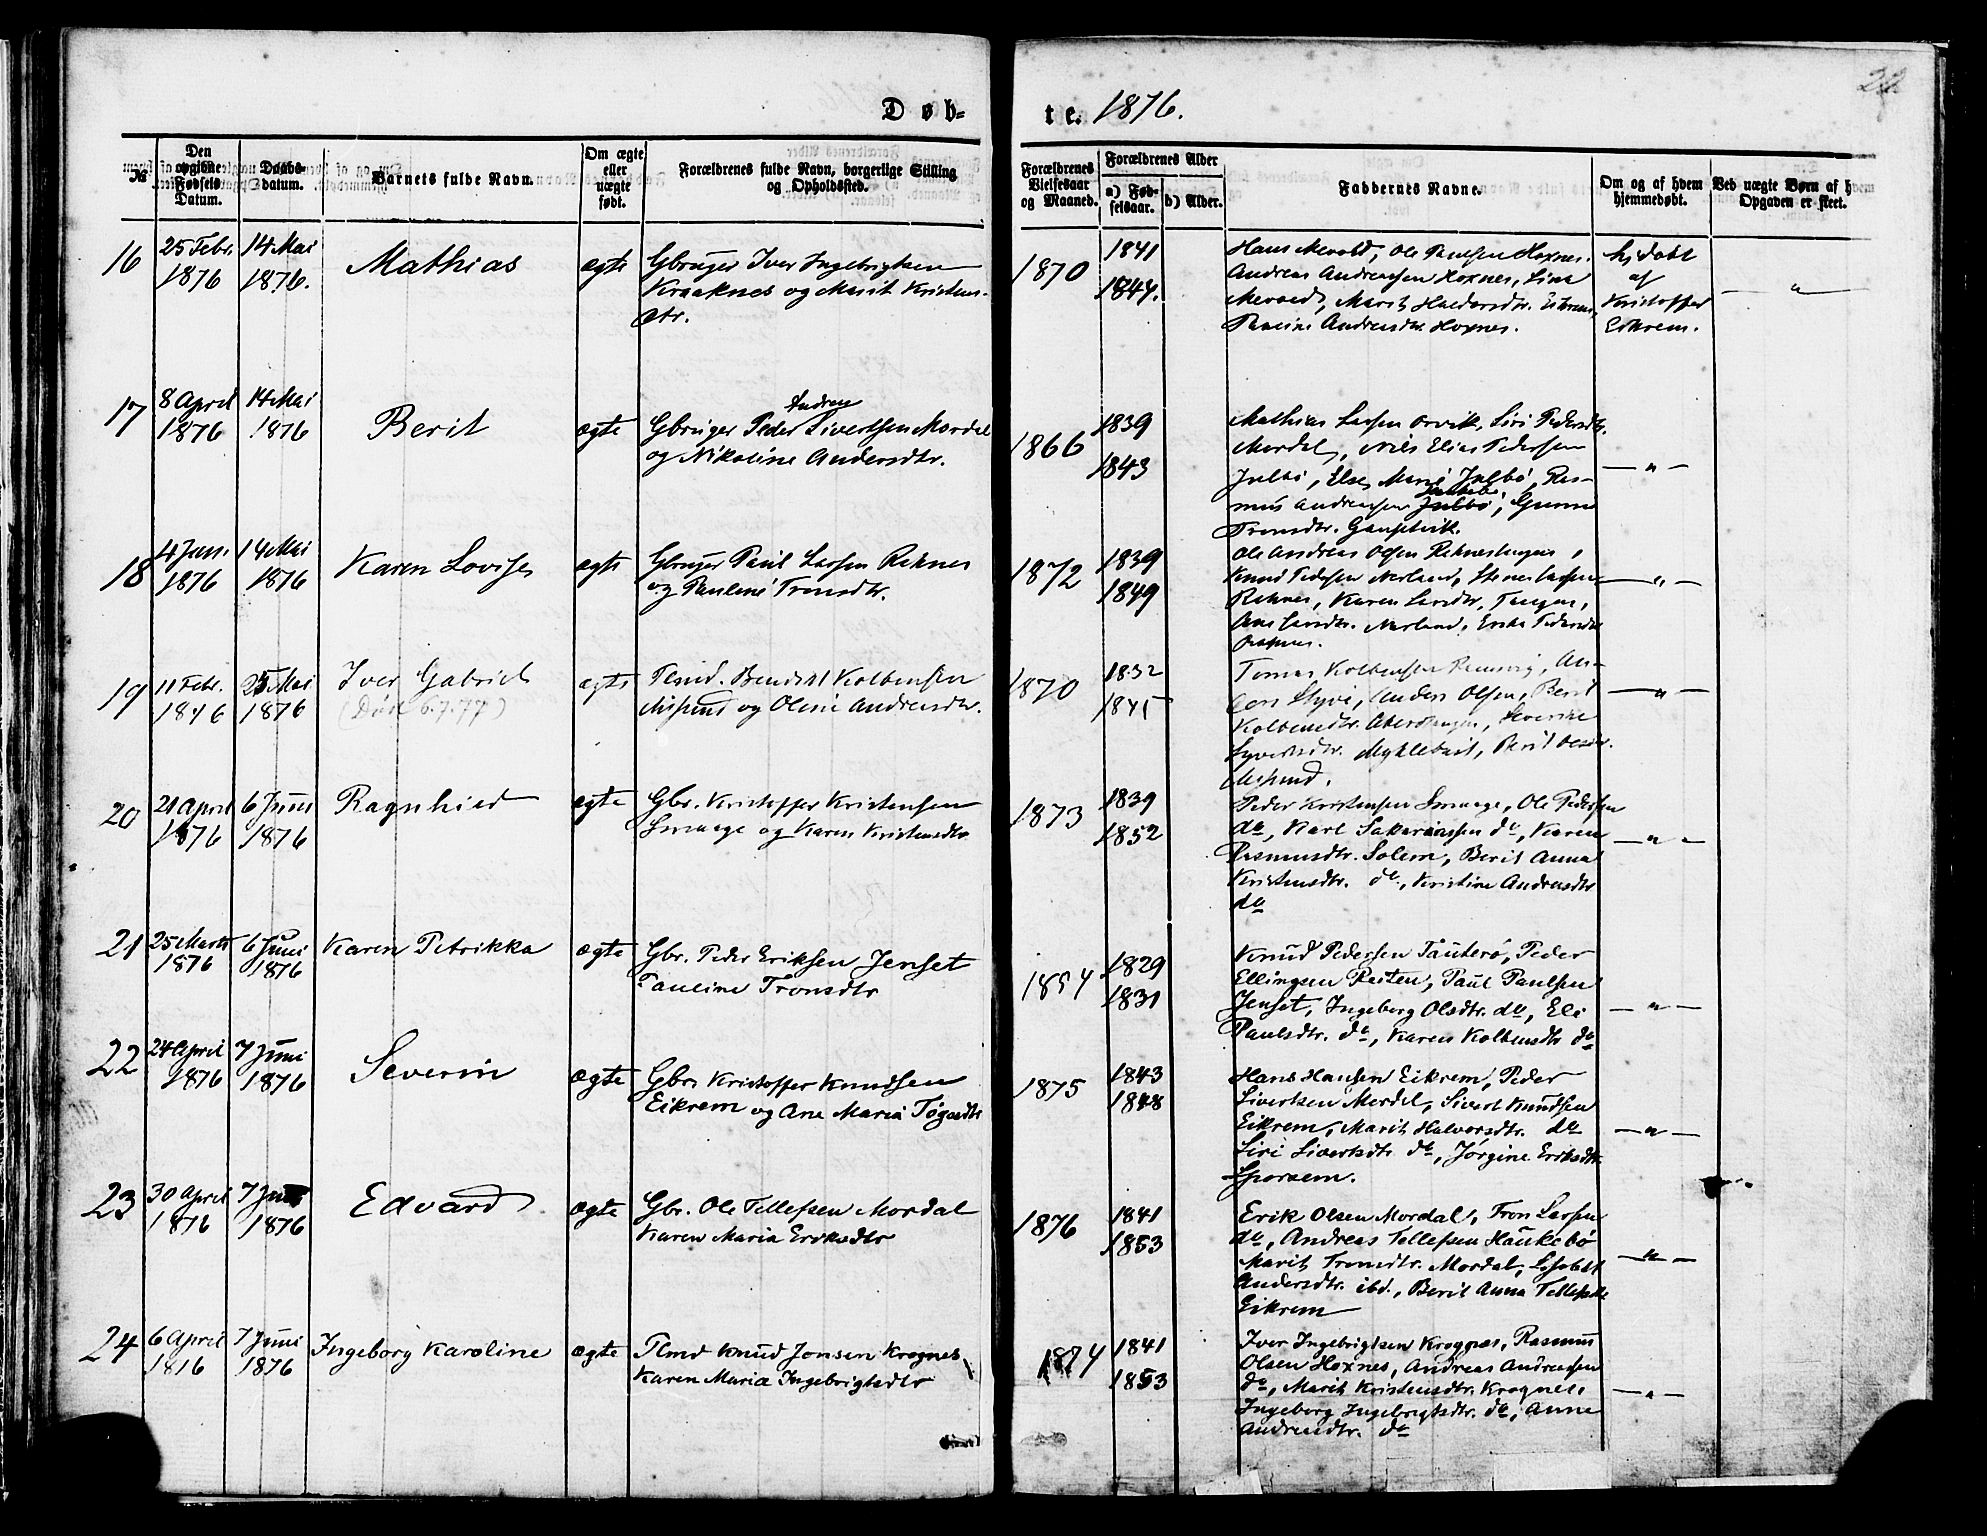 22
Døb-
te. 1876.
№
Den opgivne Fødsels Datum.
Daabs-datum.
Barnets fulde Navn.
Om ægte eller uægte født.
Forældrenes fulde Navn, borgerlige Stilling og Opholdssted.
Forældrenes Vielsesaar og Maaned.
Forældrenes Alder
a) Fødselsaar.
b) Alder.
Faddernes Navne.
Om og af hvem hjemmedøbt.
Ved uægte Børn af hvem Opgaven er skeet.
16
25 Febr. 1876
14 Mai 1876.
Mathias
ægte
Gbruger Iver Ingebrigtsen
Kraaknes og Marit Kristens-
dtr.
1870
1841
1847.
Hans Mevold, Ole Paulsen Hoxnes.
Andreas Andreassen Hoxnes, Lina
Mevold, Marit Haldorsdtr. Eikrem,
Pauline Andreasdtr. Hoxnes.
hj.døbt
af
Kristoffer
Eikrem.
— " —
17
8 April 1876
14 Mai 1876
Berit
ægte
Andreas
Gbruger Peder Sivertsen Mordal
og Nikoline Andersdtr.
1866
1839
1843
Mathias Larsen Orvik, Siri Pedersdtr.
Mordal, Nils Elias Pedersen
Julbø, Else Marie Julbø, Ras-
mus Andreassen Julbø, Gunne
Tronsdtr. Gauptvik.
— " —
18
4 Jan. 1876
14 Mai 1876
Karen Lovise
ægte
Gbruger Paul Larsen Reknes
og Pauline Tronsdtr.
1872
1839
1849
Ole Andreas Olsen Rekneshagen,
Knud Pedersen Nerland, Stener Larsen
Reknes, Karen Larsdtr. Tangen,
Ane Larsdtr. Nerland, Erika Pedersdtr.
— " —
19
11 Febr. 1876
25 Mai 1876
Iver Gabriel
(Død 6.7.77)
ægte
Plmd. Bendikt Kolbensen
Mispund og Oline Andreasdtr.
1870
1832
1845
Tomas Kolbensen Remsvig, An-
Anders Olsen, Berit
Kolbensdtr. Severine
Syvertsdtr. Myklebust, Berit
— " —
20
21 April 1876
6 Juni 1876
Ragnhild
ægte
Gbr. Kristoffer Kristensen
Smaage og Karen Kristensdtr
1873
1839
1852
Peder Kristensen Smaage, Ole Pedersen
do, Karl Sakariassen do, Karen
Rasmusdtr. Solem, Berit Anna
Kristensdtr. do., Kristine Andreasdtr
do
— " —
21
25 Marts 1876
6 Juni 1876
Karen Petrikka
ægte
Gbr. Peder Eriksen Jenset
Pauline Tronsdtr
1854
1829
1831
Knud Pedersen Tauterø, Peder
Ellingsen Reiten, Paul Paulsen
Jenset, Ingeborg Olsdtr. do, Eli
Paulsdtr. do, Karen Kolbensdtr do
— " —
22
24 April 1876
7 Juni 1876
Severin
ægte
Gbr. Kristoffer Knudsen
Eikrem og Ane Maria Tøgersdtr
1875
1843
1848
Hans Hansen Eikrem, Peder
Sivertsen Mordal, Sivert Knudsen
Eikrem, Marit Halvorsdtr. do
Siri Sivertsdtr do, Jørgine Eriksdtr
Sporsem.
— " —
23
30 April 1876
7 Juni 1876
Edvard
ægte
Gbr. Ole Tellefsen Mordal
Karen Maria Eriksdtr
1876
1841
1853
Erik Olsen Mordal, Tron Larsen
do, Andreas Tellefsen Haukebø
Marit Tronsdtr. Mordal, Lisabet
Andersdtr. ibd., Berit Anna Tellefsdtr
Eikrem
— " —
24
6 April 1876
7 Juni 1876
Ingeborg Karoline
ægte
Plmd Knud Jonsen Krognes
Karen Maria Ingebrigtsdtr
1874
1841
1853
Iver Ingebrigtsen Krognes, Rasmus
Olsen Hoxnes, Andreas Andreassen
do, Marit Kristensdtr. Krognes,
Ingeborg Ingebrigtsdtr. do, Anne
Andreasdtr. do
— " —